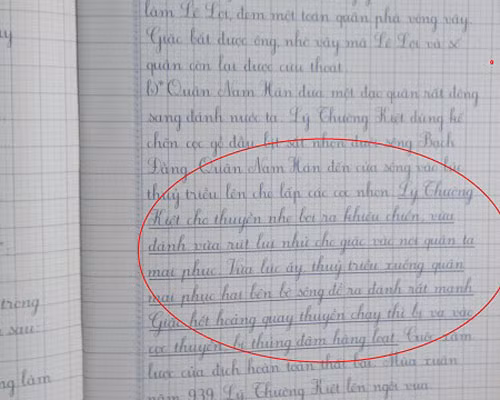 làm Lê Lợi, đem một toán quân phá vòng vây
Giặc bắt được ông, nhờ vậy mà Lê Lợi và số
quân còn lại được cứu thoát
b) Quân Nam Hán đưa một đạo quân rất đông
sang đánh nước ta. Lý Thường Kiệt dùng kế
chôn cọc gỗ đầu bịt sắt nhọn dưới sông Bạch
Đằng. Quân Nam Hán đến cửa sông vào lúc
thuỷ triều lên che lấp các cọc nhọn. Lý Thường
Kiệt cho thuyền nhẹ bơi ra khiêu chiến, vừa
đánh vừa rút lui nhử cho giặc vào nơi quân ta
mai phục. Vừa lúc ấy, thuỷ triều xuống quân
mai phục hai bên bờ sông đổ ra đánh rất mạnh
Giặc hốt hoảng quay thuyền chạy thì bị va vào
cọc thuyền bị thủng đắm hàng loạt. Cuộc xâm
lược của địch hoàn toàn thất bại. Mùa xuân
năm 939 Lý Thường Kiệt lên ngôi vua
trong
sau
ng làm